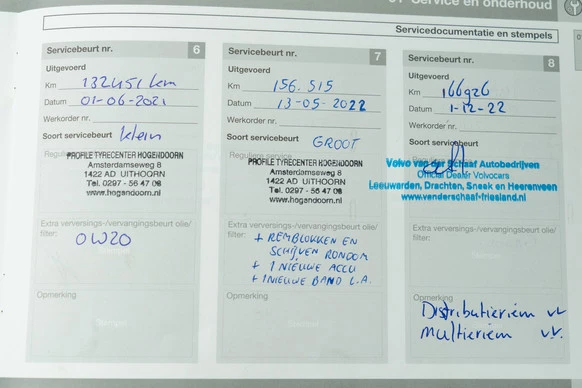 Service en onderhoud
Servicedocumentatie en stempels
Servicebeurt nr. 6
Uitgevoerd
Km 132451 km
Datum 01-06-2021
Werkorder nr.
Soort servicebeurt klein
PROFILE TYRECENTER HOGENDOORN
Amsterdamseweg 8
1422 AD UITHOORN
Tel. 0297 - 56 47 08
www.hogendoorn.nl
Extra verversings-/vervangingsbeurt olie/
filter:
OW20
Opmerking
Servicebeurt nr. 7
Uitgevoerd
Km 156.515
Datum 13-05-2022
Werkorder nr.
Soort servicebeurt
GROOT
PROFILE TYRECENTER HOGENDOORN
Amsterdamseweg 8
1422 AD UITHOORN
Tel. 0297 - 56 47 08
www.hogendoorn.nl
Extra verversings-/vervangingsbeurt olie/
filter:
+ REMBLOKKEN EN
SCHIJVEN RONDOM
+ 1 NIEUWE ACCU
+ 1 NIEUWE BAND L.A.
Opmerking
Servicebeurt nr. 8
Uitgevoerd
Km 166926
Datum 1-12-22
Werkorder nr.
Soort servicebeurt
Volvo van der Schaaf Autobedrijven
Official Dealer Volvocars
Leeuwarden, Drachten, Sneek en Heerenveen
www.vanderschaaf-friesland.nl
Extra verversings-/vervangingsbeurt olie/
filter:
Opmerking
Distributieriem vv
multieriem v.v.